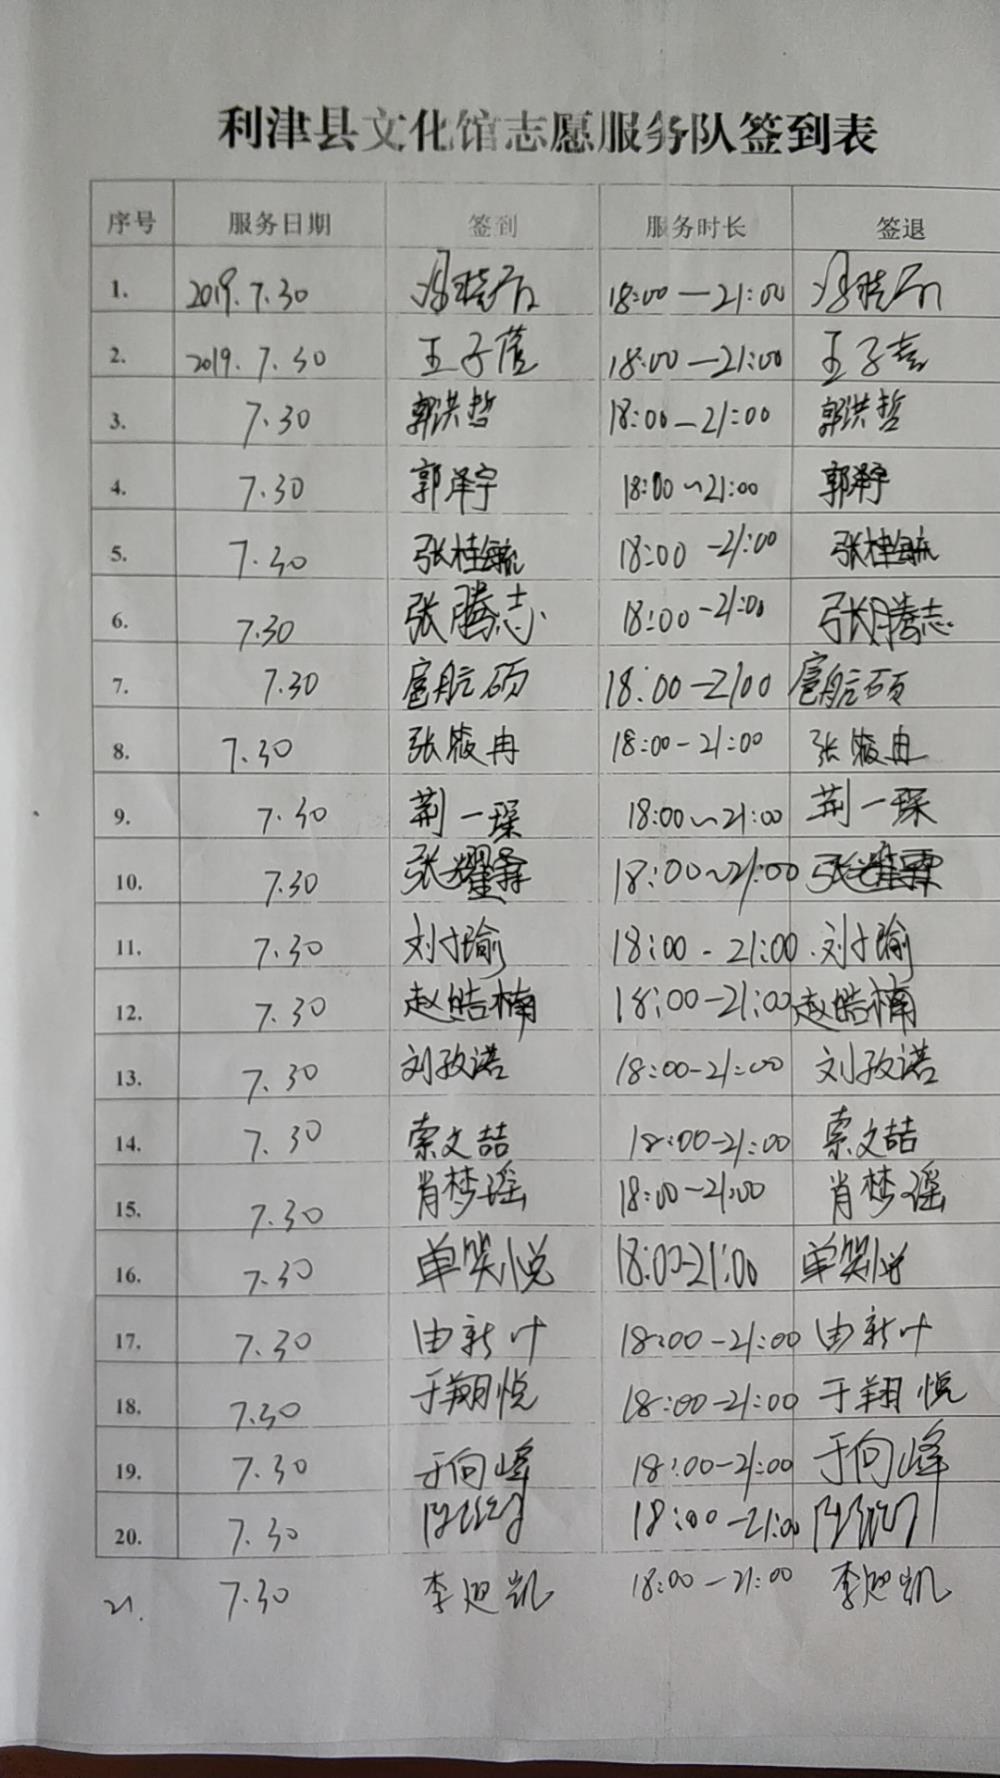 利津县文化馆志愿服务队签到表
序号 服务日期 签到 服务时长 签退
1. 2019.7.30 18:00—21:00
2. 2019.7.30 王子蕴 18:00—21:00 王子
3. 7.30 郭洪哲 18:00—21:00 郭洪哲
4. 7.30 郭泽宇 18:00~21:00 郭泽宇
5. 7.30 张桂毓 18:00-21:00 张桂毓
6. 7.30 张腾志 18:00-21:00 张腾志
7. 7.30 扈航硕 18:00—2100 扈航硕
8. 7.30 张峻冉 18:00-21:00 张峻冉
9. 7.30 荆一琛 18:00~21:00 荆一琛
10. 7.30 张耀霖 18:00~21:00 张耀霖
11. 7.30 刘才瑜 18:00-21:00 刘才瑜
12. 7.30 赵皓楠 18:00-21:00 赵皓楠
13. 7.30 刘孜诺 18:00-21:00 刘孜诺
14. 7.30 索文喆 18:00-21:00 索文喆
15. 7.30 肖梦瑶 18:00-21:00 肖梦瑶
16. 7.30 单笑悦 18:00-21:00 单笑悦
17. 7.30 由新叶 18:00-21:00 由新叶
18. 7.30 于翔悦 18:00-21:00 于翔悦
19. 7.30 于向峰 18:00-21:00 于向峰
20. 7.30 18:00-21:00
21. 7.30 李迎凯 18:00-21:00 李迎凯